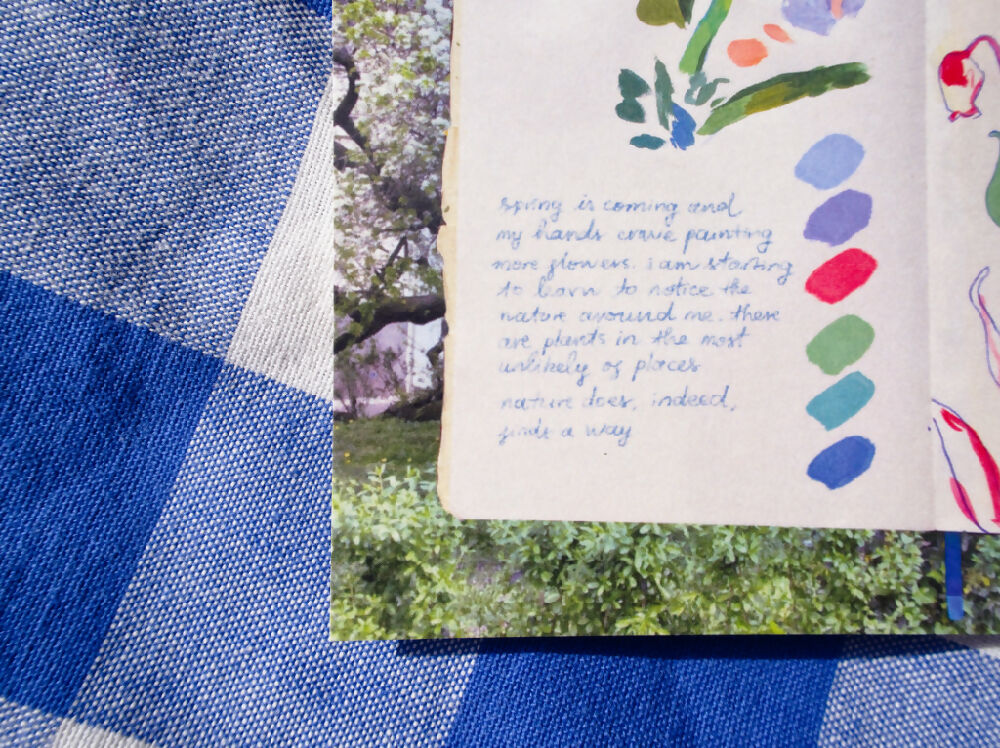 spring is coming and
my hands crave painting
more flowers. i am starting
to learn to notice the
nature around me. there
are plants in the most
unlikely of places
nature does, indeed,
finds a way